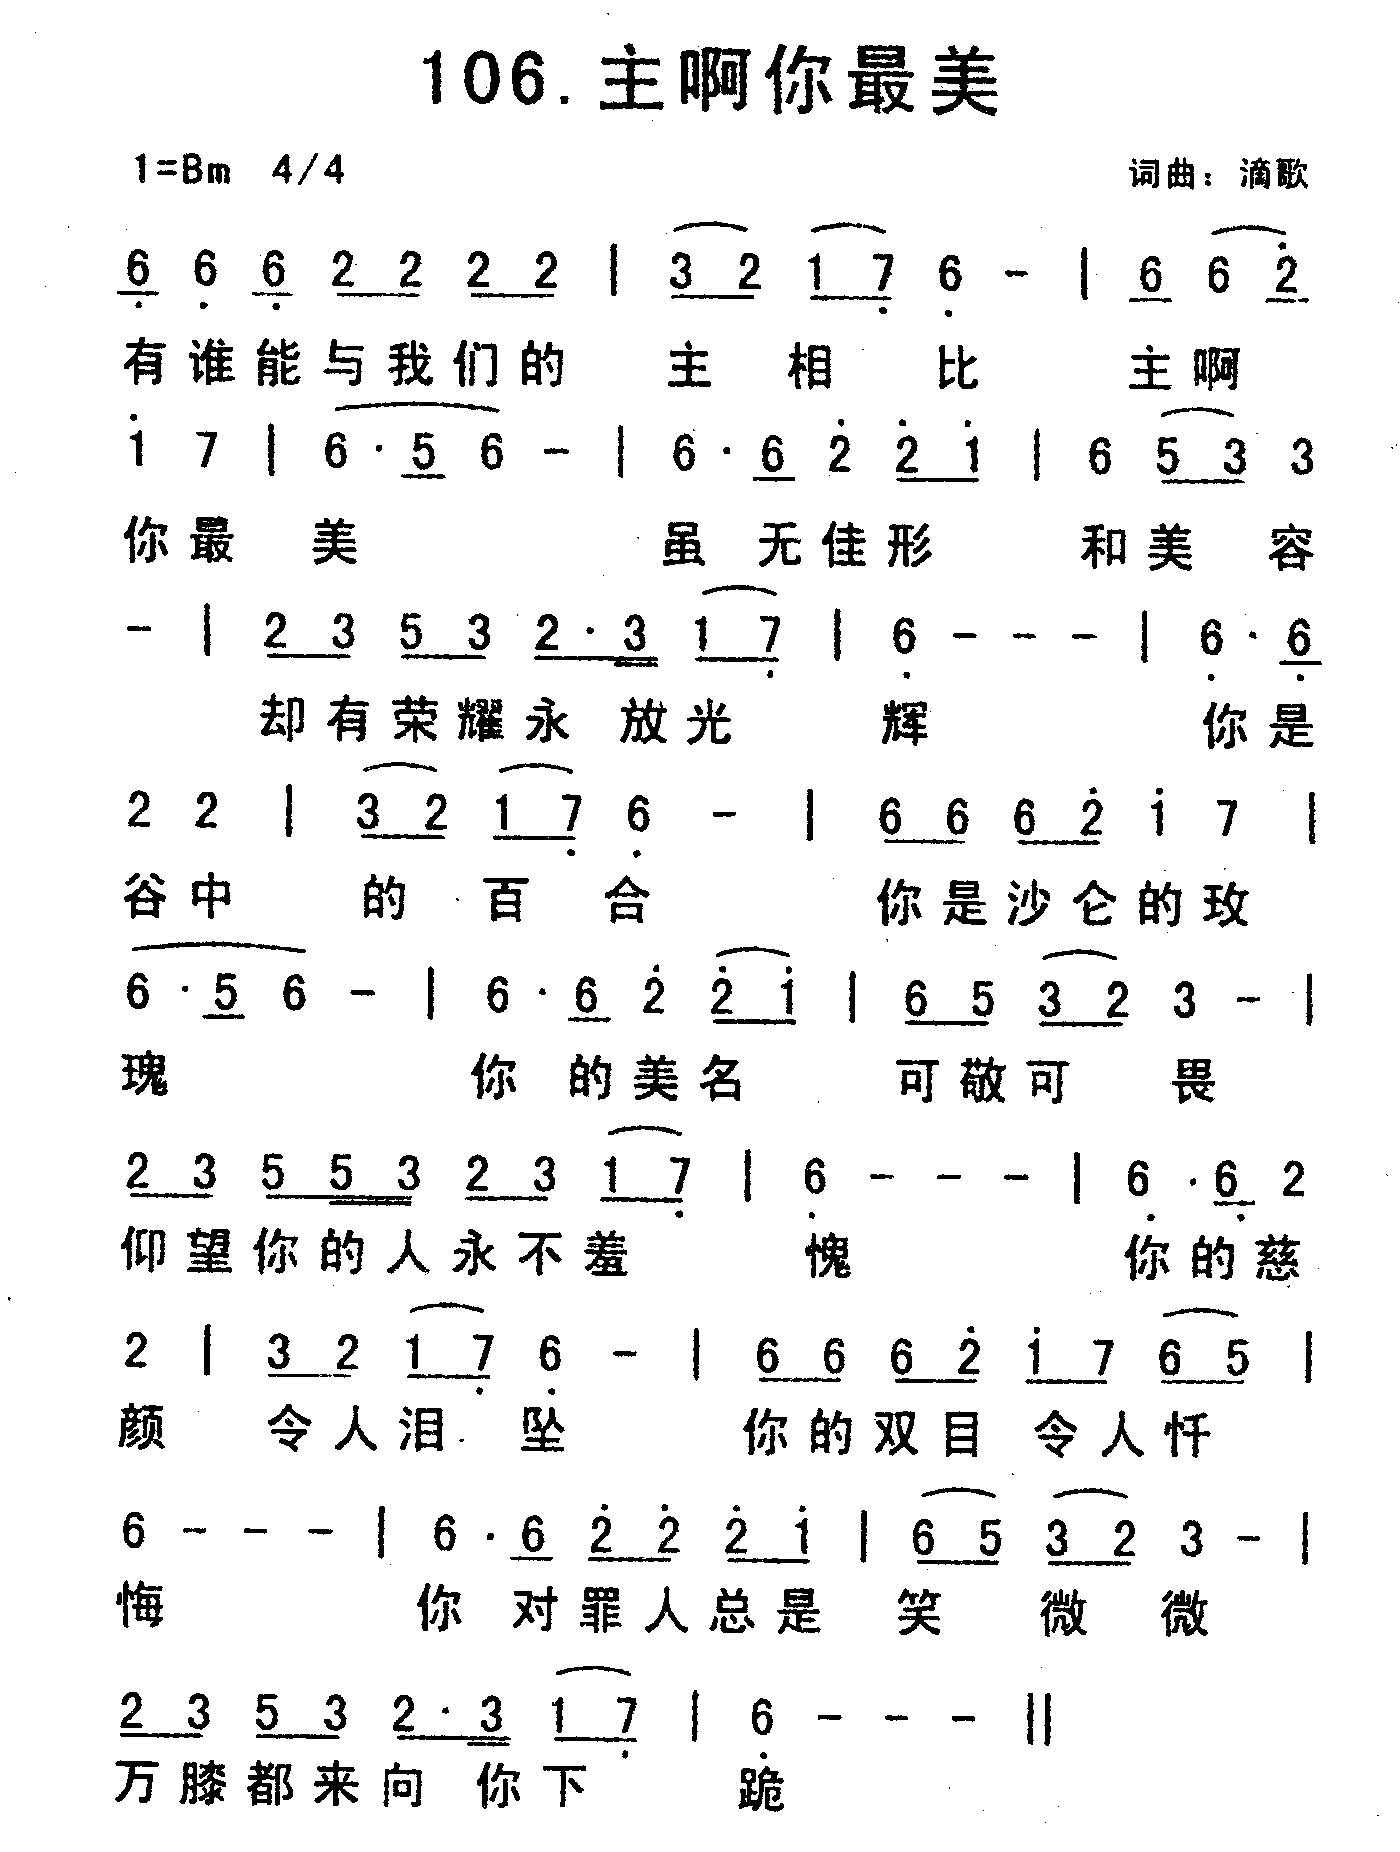 106.主啊你最美
1=Bm 4/4 词曲：滴歌
6 6 6 2 2 2 2 | 3 2 1 7 6 - | 6 6 2
有谁能与我们的 主相比 主啊
1 7 | 6 · 5 6 - | 6 · 6 2 2 1 | 6 5 3 3
你最美 虽无佳形 和美容
- | 2 3 5 3 2 · 3 1 7 | 6 - - - | 6 · 6
却有荣耀永放光辉 你是
2 2 | 3 2 1 7 6 - | 6 6 6 2 1 7 |
谷中的百合 你是沙仑的玫
6 · 5 6 - | 6 · 6 2 2 1 | 6 5 3 2 3 - |
瑰 你的美名 可敬可畏
2 3 5 5 3 2 3 1 7 | 6 - - - | 6 · 6 2
仰望你的人永不羞愧 你的慈
2 | 3 2 1 7 6 - | 6 6 6 2 1 7 6 5 |
颜 令人泪坠 你的双目令人忏
6 - - - | 6 · 6 2 2 2 1 | 6 5 3 2 3 - |
悔 你对罪人总是笑微微
2 3 5 3 2 · 3 1 7 | 6 - - - ||
万膝都来向你下跪